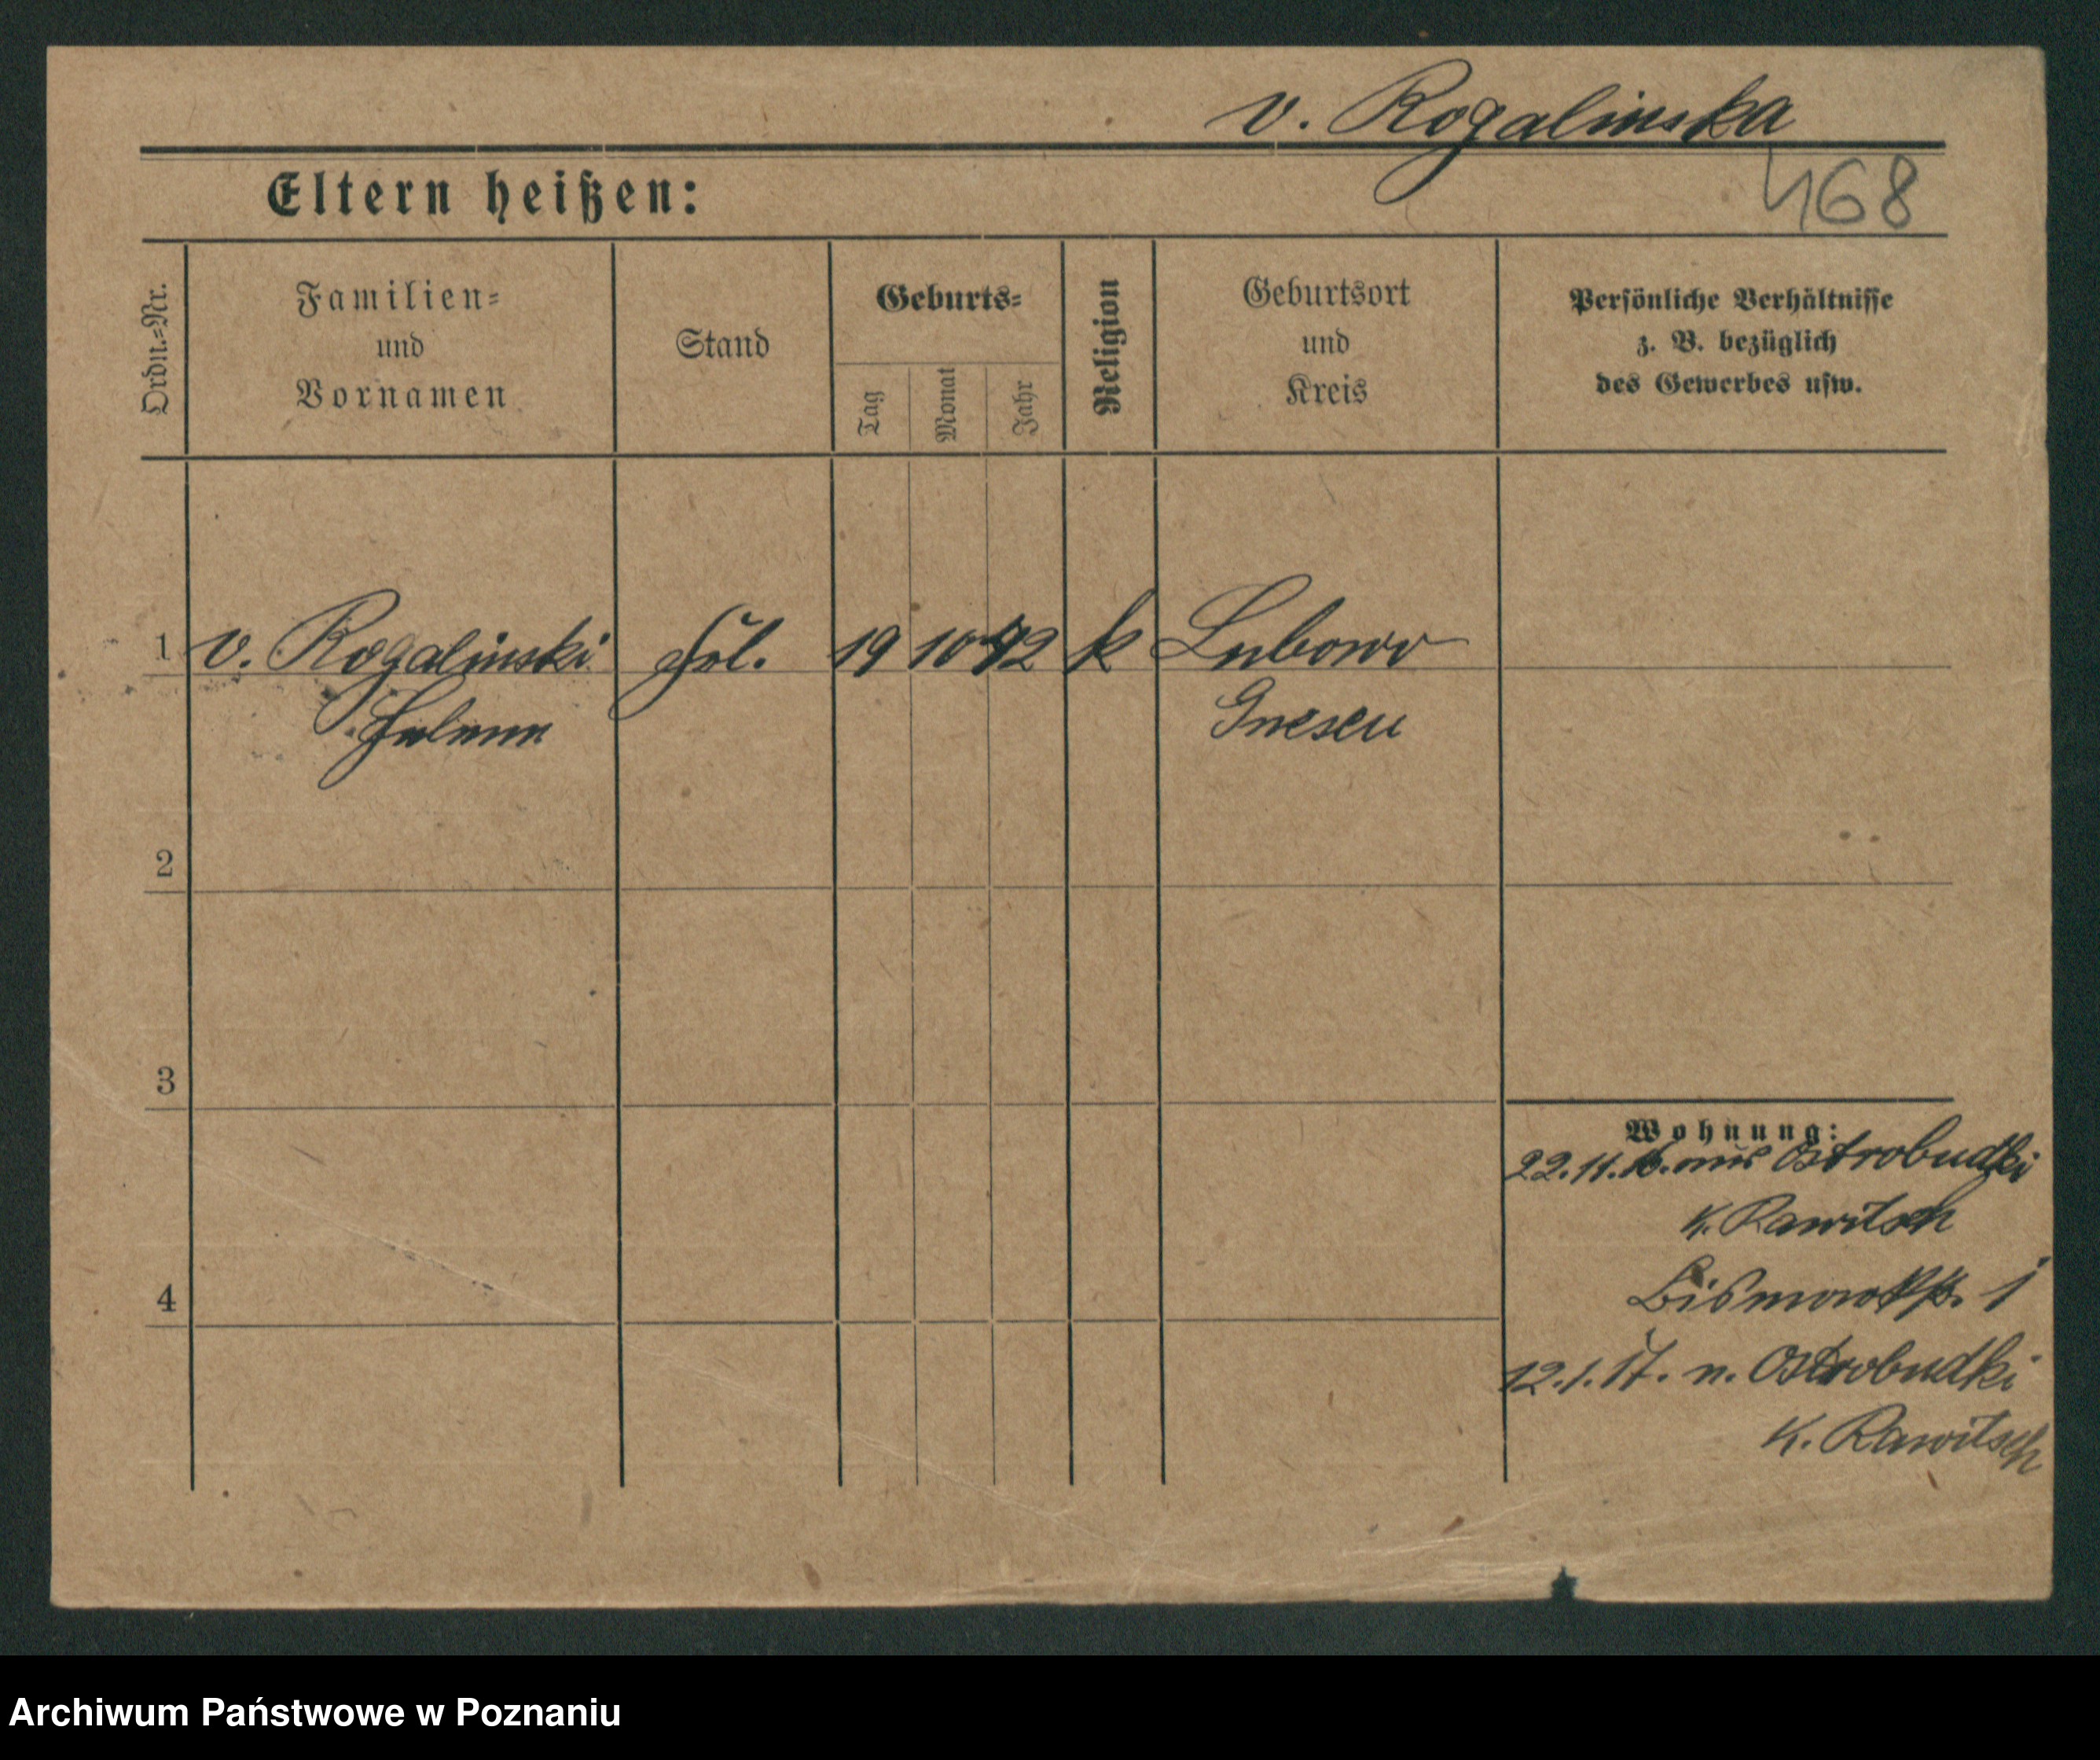 v. Rogalinska
468
Eltern heißen:
Ordn.=Nr.
Familien=
und
Vornamen
Stand
Geburts=
Tag
Monat
Jahr
Religion
Geburtsort
und
Kreis
Persönliche Verhältnisse
z. B. bezüglich
des Gewerbes usw.
1 v. Rogalinski 19 10 42 k Lubowo
Gnesen
2
3
4
Wohnung:
22.11.16. aus Ostrobudki
K. Rawitsch
Bismarckstr. 1
12.1.17. n. Ostrobudki
K. Rawitsch
Archiwum Państwowe w Poznaniu